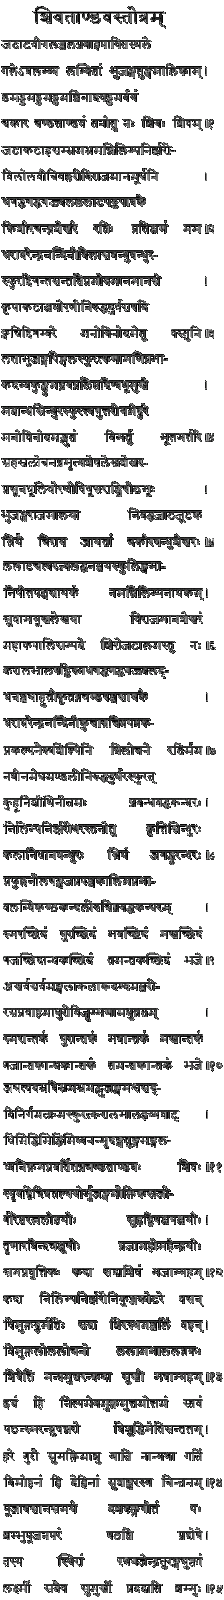 शिवताण्डवस्तोत्रम्
जटाटवीगलज्जलप्रवाहपावितस्थले
गलेऽवलम्ब्य लम्बितां भुजङ्गतुङ्गमालिकाम्।
डमड्डमड्डमड्डमन्निनादवड्डमर्वयं
चकार चण्डताण्डवं तनोतु नः शिवः शिवम्॥१
जटाकटाहसम्भ्रमभ्रमन्निलिम्पनिर्झरी-
विलोलवीचिवल्लरीविराजमानमूर्धनि ।
धगद्धगद्धगज्ज्वलल्ललाटपट्टपावके
किशोरचन्द्रशेखरे रतिः प्रतिक्षणं मम॥२
धराधरेन्द्रनन्दिनीविलासबन्धुबन्धुर-
स्फुरद्दिगन्तसन्ततिप्रमोदमानमानसे ।
कृपाकटाक्षधोरणीनिरुद्धदुर्धरापदि
क्वचिद्दिगम्बरे मनो विनोदमेतु वस्तुनि॥३
लताभुजङ्गपिङ्गलस्फुरत्फणामणिप्रभा-
कदम्बकुङ्कुमद्रवप्रलिप्तदिग्वधूमुखे ।
मदान्धसिन्धुरस्फुरत्त्वगुत्तरीयमेदुरे
मनो विनोदमद्भुतं बिभर्तु भूतभर्तरि॥४
सहस्रलोचनप्रभृत्यशेषलेखशेखर-
प्रसूनधूलिधोरणीविधूसराङ्घ्रिपीठभूः ।
भुजङ्गराजमालया निबद्धजाटजूटकः
श्रियै चिराय जायतां चकोरबन्धुशेखरः॥५
ललाटचत्वरज्वलद्धनञ्जयस्फुलिङ्गभा-
निपीतपञ्चसायकं नमन्निलिम्पनायकम्।
सुधामयूखलेखया विराजमानशेखरं
महाकपालिसम्पदे शिरोजटालमस्तु नः॥६
करालभालपट्टिकाधगद्धगद्धगज्ज्वलद्-
धनञ्जयाहुतीकृतप्रचण्डपञ्चसायके ।
धराधरेन्द्रनन्दिनीकुचाग्रचित्रपत्रक-
प्रकल्पनैकशिल्पिनि त्रिलोचने रतिर्मम॥७
नवीनमेघमण्डलीनिरुद्धदुर्धरस्फुरत्
कुहूनिशीथिनीतमः प्रबन्धबद्धकन्धरः।
निलिम्पनिर्झरीधरस्तनोतु कृत्तिसिन्धुरः
कलानिधानबन्धुरः श्रियं जगद्धुरन्धरः॥८
प्रफुल्लनीलपङ्कजप्रपञ्चकालिमप्रभा-
वलम्बिकण्ठकन्दलीरुचिप्रबद्धकन्धरम् ।
स्मरच्छिदं पुरच्छिदं भवच्छिदं मखच्छिदं
गजच्छिदान्धकच्छिदं तमन्तकच्छिदं भजे॥९
अखर्वसर्वमङ्गलाकलाकदम्बमञ्जरी-
रसप्रवाहमाधुरीविजृम्भणामधुव्रतम्।
स्मरान्तकं पुरान्तकं भवान्तकं मखान्तकं
गजान्तकान्धकान्तकं तमन्तकान्तकं भजे॥१०
जयत्वदभ्रविभ्रमभ्रमद्भुजङ्गमश्वसद्-
विनिर्गमत्क्रमस्फुरत्करालभालहव्यवाट् ।
धिमिद्धिमिद्धिमिध्वनन्मृदङ्गतुङ्गमङ्गल-
ध्वनिक्रमप्रवर्तितप्रचण्डताण्डवः शिवः॥११
स्पृषद्विचित्रतल्पयोर्भुजङ्गमौक्तिकस्रजो-
र्गरिष्ठरत्नलोष्ठयोः सुहृद्विपक्षपक्षयोः।
तृणारविन्दचक्षुषोः प्रजामहीमहेन्द्रयोः
समप्रवृत्तिकः कदा सदाशिवं भजाम्यहम्॥१२
कदा निलिम्पनिर्झरीनिकुञ्जकोटरे वसन्
विमुक्तदुर्मतिः सदा शिरःस्थमञ्जलिं वहन्।
विमुक्तलोललोचनो ललामभाललग्नकः
शिवेति मन्त्रमुच्चरन्कदा सुखी भवाम्यहम्॥१३
इमं हि नित्यमेवमुक्तमुत्तमोत्तमं स्तवं
पठन्स्मरन्ब्रुवन्नरो विशुद्धिमेतिसन्ततम्।
हरे गुरौ सुभक्तिमाशु याति नान्यथा गतिं
विमोहनं हि देहिनां सुशङ्करस्य चिन्तनम्॥१४
पूजावसानसमये दशवक्त्रगीतं यः
शम्भुपूजनपरं पठति प्रदोषे।
तस्य स्थिरां रथगजेन्द्रतुरङ्गयुक्तां
लक्ष्मीं सदैव सुमुखीं प्रददाति शम्भुः॥१५